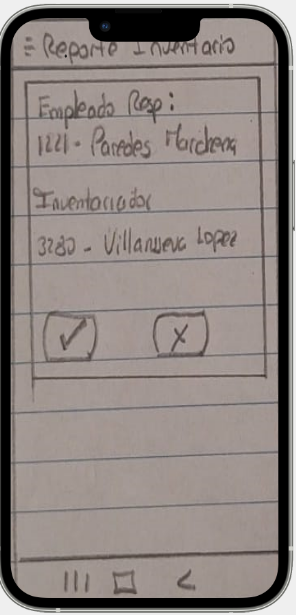 Reporte Inventario
Empleado Resp:
1221 - Paredes Marchena
Inventariador
3280 - Villanueva Lopez